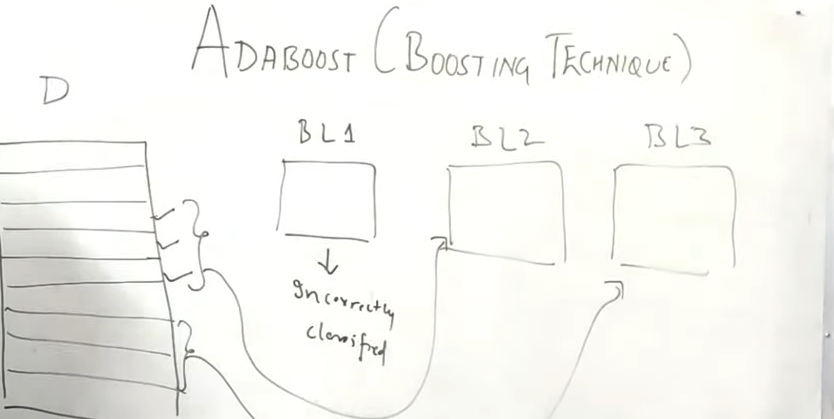 ADABOOST (BOOSTING TECHNIQUE)
D
BL1
BL2
BL3
Incorrectly
classified